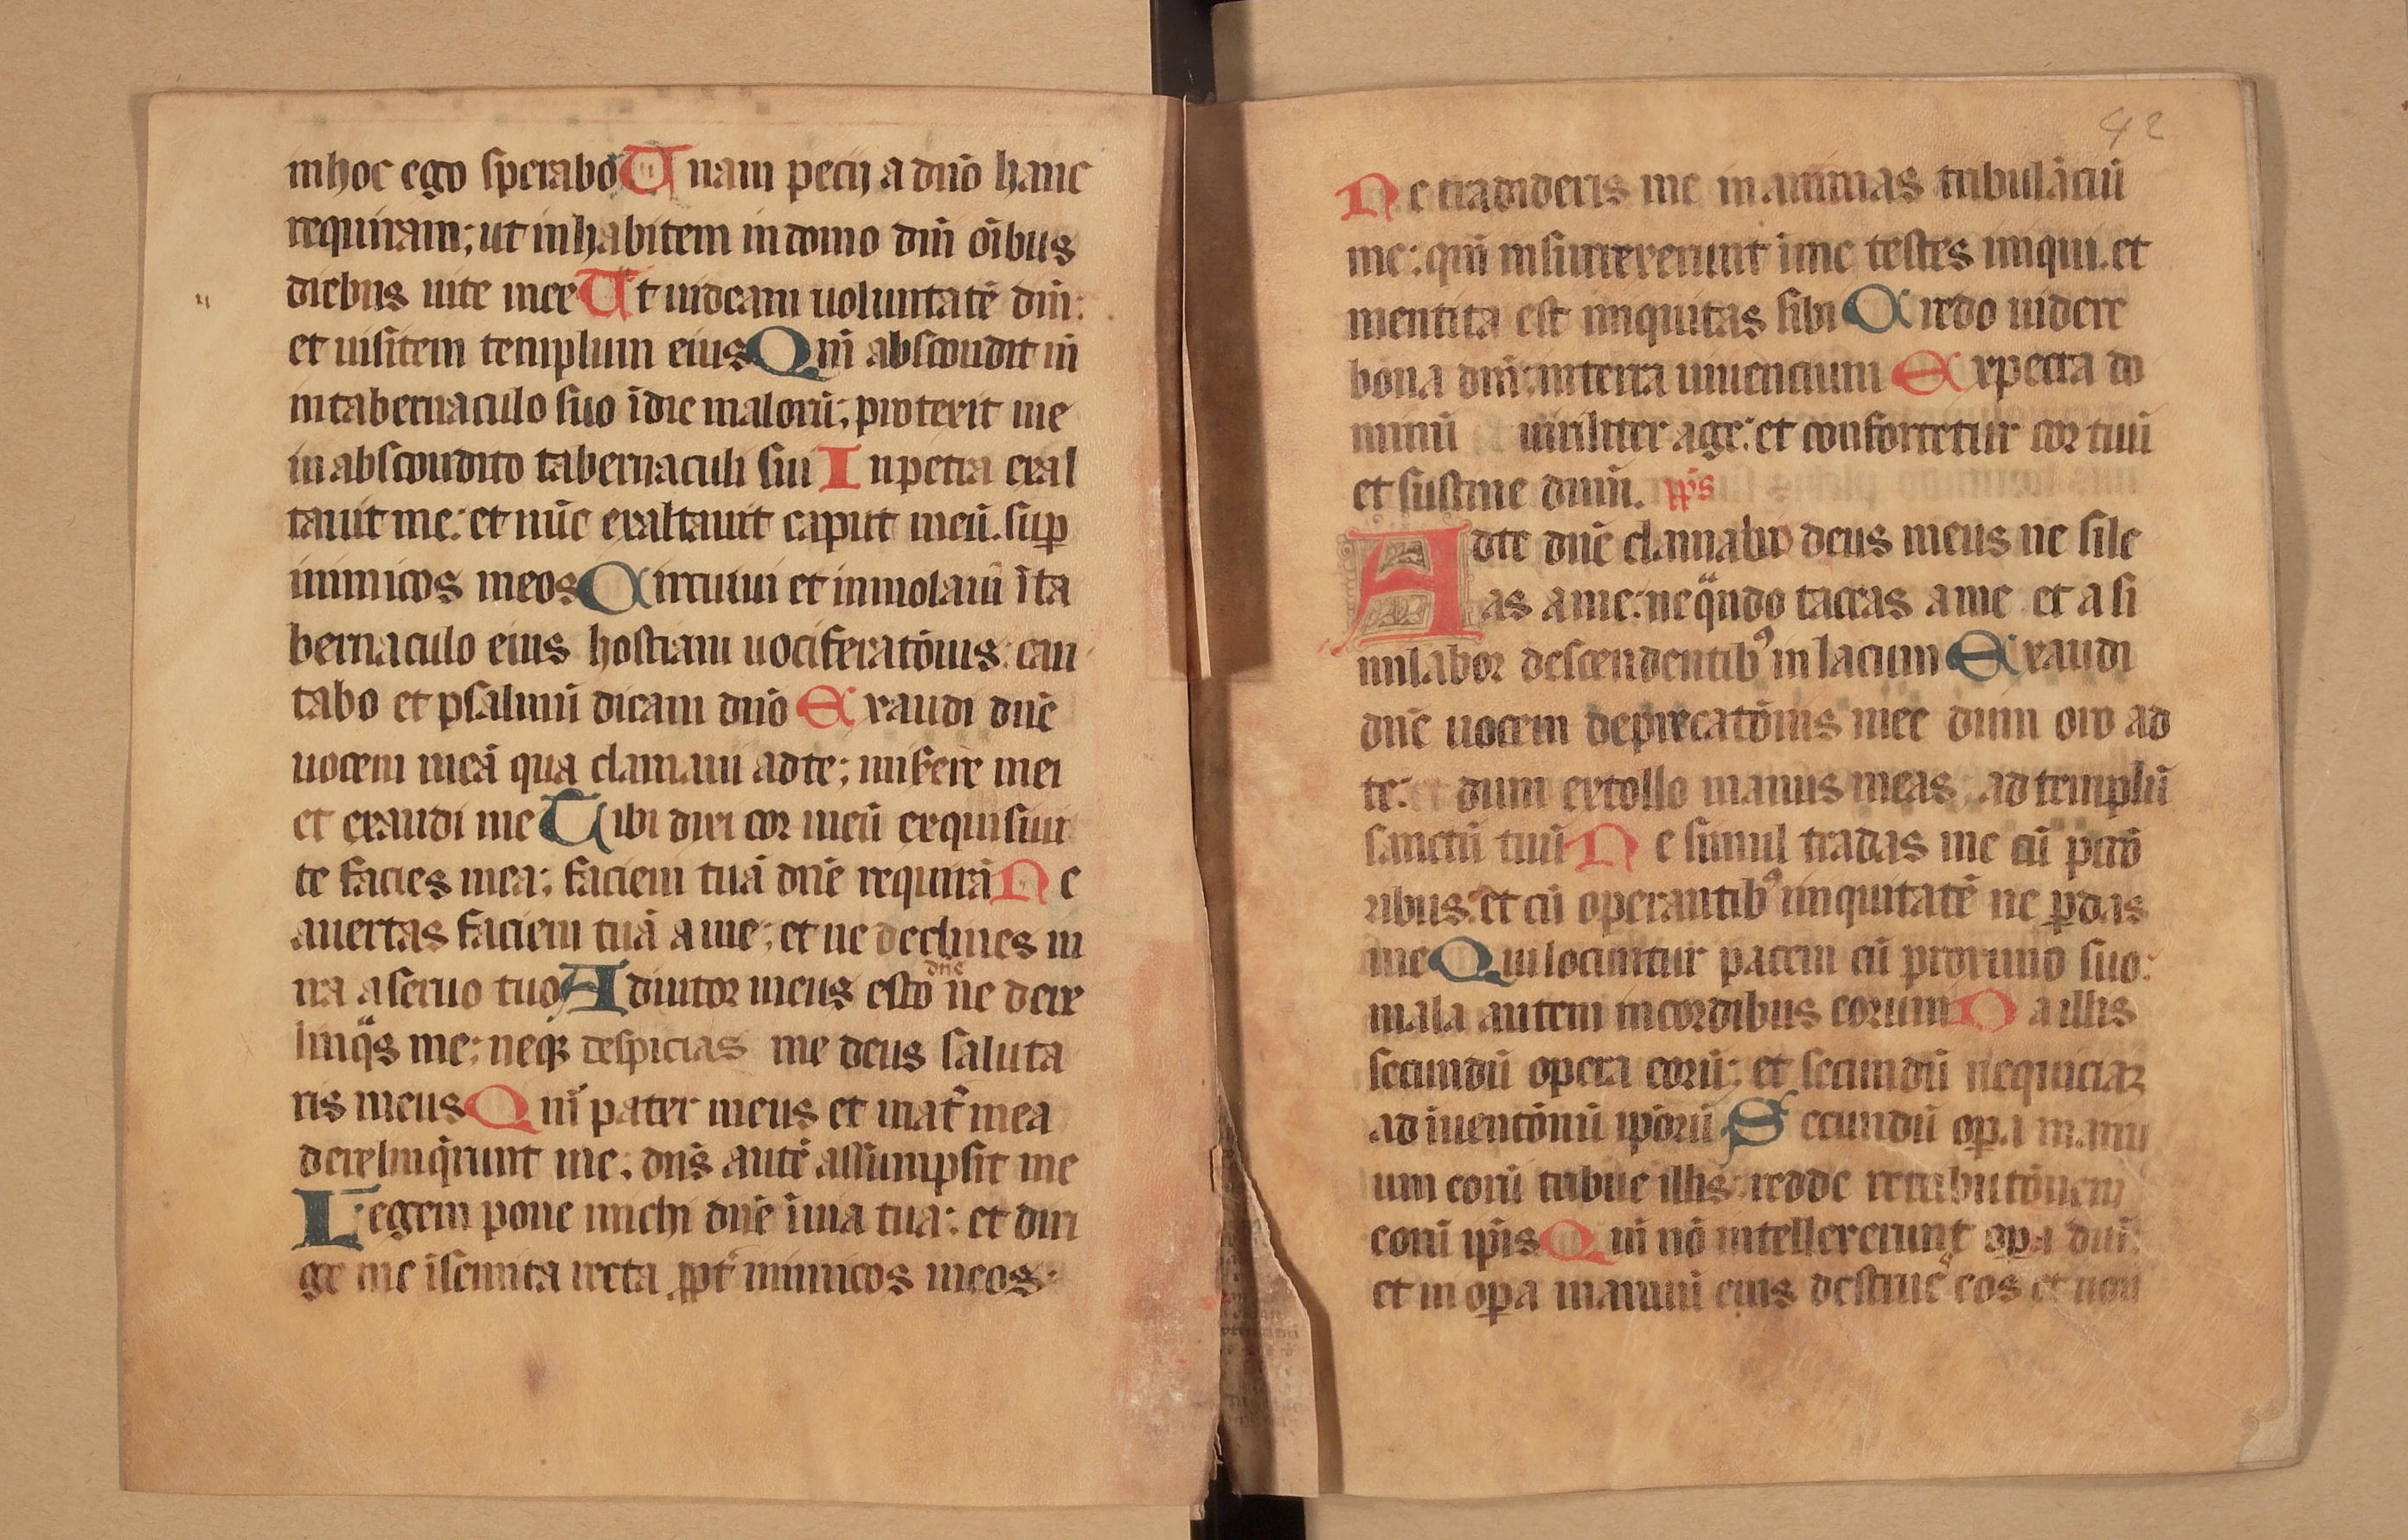 inhoc ego sperabo Unam pecij a dn̄o hanc
requiram; ut inhabitem in domo dn̄i oībus
diebus uite mee Ut uideam uoluntatē dn̄i:
et uisitem templum eius Qm̄ abscondit m̄
in tabernaculo suo ī die malorū; proterit me
in abscondito tabernaculi sui In petra exal
tauit me: et nūc exaltauit caput meū. sup̄
inimicos meos Circuiui et inmolaui ī ta
bernaculo eius hostiam uociferatōnis: can
tabo et psalmū dicam dn̄o Exaudi dn̄e
uocem meā qua clamaui ad te; misere mei
et exaudi me Tibi dixi cor meū exquisiuit
te facies mea; faciem tuā dn̄e requirā Ne
auertas faciem tuā a me; et ne declines in
ira a seruo tuo Adiutor meus esto dn̄e ne dere
linqᵃs me; neqꝫ despicias me deus saluta
ris meus Qm̄ pater meus et mat̄ mea
derelinq̄runt me; dn̄s autē assumpsit me
Legem pone michi dn̄e ī uia tua: et diri
ge me ī semita recta ꝓpt̄ inimicos meos:
42
Ne tradideris me in animas tribulāciū
me: qm̄ insurrexerunt ī me testes iniqui. et
mentita est iniquitas sibi Credo uidere
bona dn̄i; in terra uiuencium Expecta do
minū uiriliter age: et confortetur cor tuū
et sustine dnm̄. ꝓ̄s
Ad te dn̄e clamabo deus meus ne sile
as a me: ne qᵃndo taceas a me et assi
milabor descendentibꝰ in lacum Exaudi
dn̄e uocem deprecatōnis mee dum oro ad
te: et dum extollo manus meas ad templū
sanctū tuū Ne simul tradas me cū pcō
ribus: et cū operantibꝰ iniquitatē ne ꝑdas
me Qui locuntur pacem cū proximo suo:
mala autem in cordibus eorum Da illis
secundū opera eorū; et secundū nequiciaꝝ
ad īuentōnū ipōrū Secundū oꝑa manu
um eorū tribue illis: redde retributōnem
eorū ip̄is Qm̄ nō intellexerunt oꝑa dn̄i:
et in oꝑa manuū eius destrue᷑ eos et non